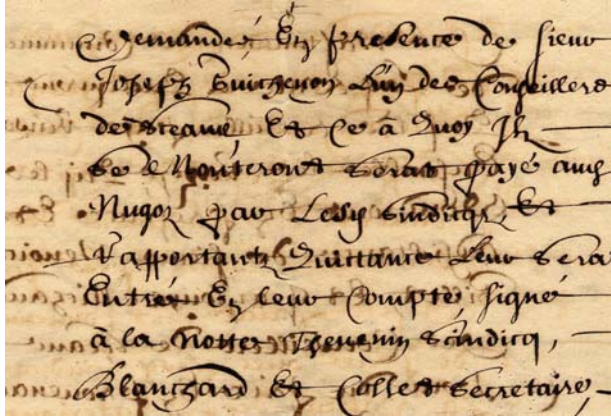 demandes En presence de sieur
Josefz Guichenon L'un des Conseillers
de sceans, Et Ce à Quoy Ilz
se Monteront serat payé aux
par Lesd sindicqz Et
Rapportantz Quittance Leur sera
Entrée En leur Compte signé
à la Notte Thevenin scindicq,
Blanchard Et Collet secretaire,